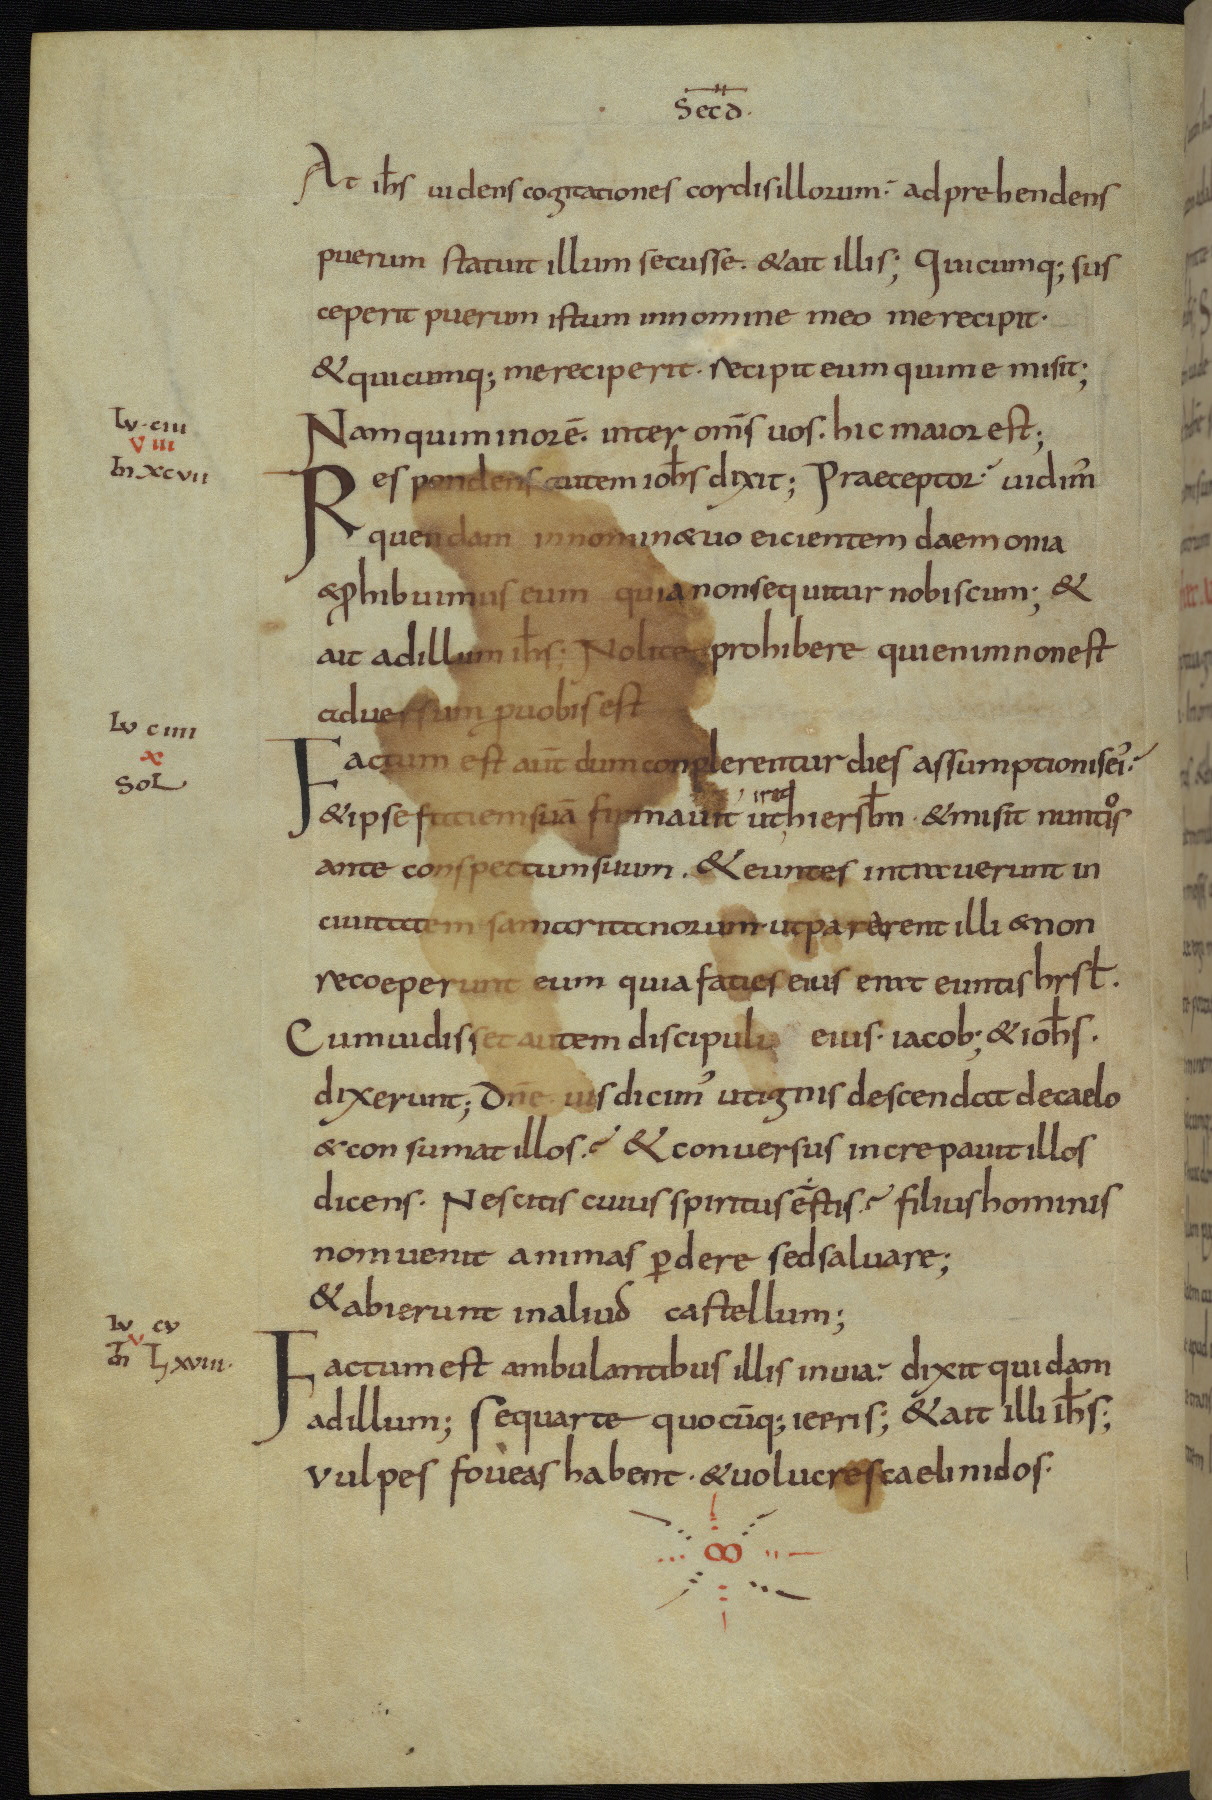 Secd̅
At ih̅s uidens cogitationes cordis illorum. adprehendens
puerum statuit illum secusse. & ait illis; Quicumq; sus
ceperit puerum istum in nomine meo me recipit.
& quicumq; me reciperit. recipit eum qui me misit;
Lv. ciii
Nam qui minor e̅. inter om̅s uos. hic maior est;
VIII
Mr̅ xcvii
Respondens autem ioh̅s dixit; Praeceptor. uidim᾿
quendam in nomine tuo eicientem daemonia
& ꝓhibuimus eum quia non sequitur nobiscum; &
ait ad illum ih̅s; Nolite prohibere qui enim non est
aduersum ꝓ uobis est
Lv ciiii
x
Sol
Factum est aut̅ dum conplerentur dies assumptionis ei᾿.
& ipse faciem sua̅ firmauit ut iret hierśl̅m. & misit nuntios
ante conspectum suum. & euntes intrauerunt in
ciuitatem samaritanorum ut parerent illi & non
recoeperunt eum quia facies eius erat euntis hrsl̅.
Cum uidisset autem discipuli eius. iacob; & ioh̅s.
dixerunt; Dn̅e uis dicim᾿ ut ignis descendat de caelo
& consumat illos. & conuersus increpauit illos
dicens. Nescitis cuius spiritus estis. filius hominis
non uenit animas ꝑdere sed saluare;
& abierunt in aliud castellum;
Lv cv
v
Factum est ambulantibus illis in uia. dixit quidam
Lxviii.
ad illum; sequar te quocu̅q; ieris; & ait illi ih̅s;
Vulpes foueas habent. & uolucres caeli nidos.